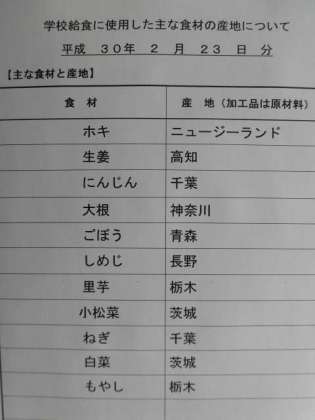 学校給食に使用した主な食材の産地について
平成 30年 2 月 23 日 分
【主な食材と産地】
食 材 産 地（加工品は原材料）
ホキ ニュージーランド
生姜 高知
にんじん 千葉
大根 神奈川
ごぼう 青森
しめじ 長野
里芋 栃木
小松菜 茨城
ねぎ 千葉
白菜 茨城
もやし 栃木